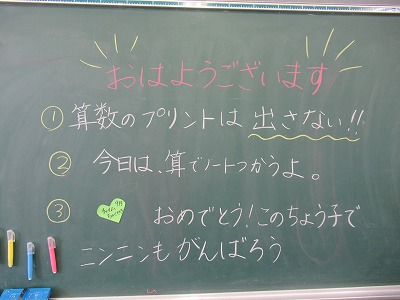 おはようございます
① 算数のプリントは 出さない!!
② 今日は、算でノートつかうよ。
③ おめでとう!このちょう子で
ニンニンもがんばろう